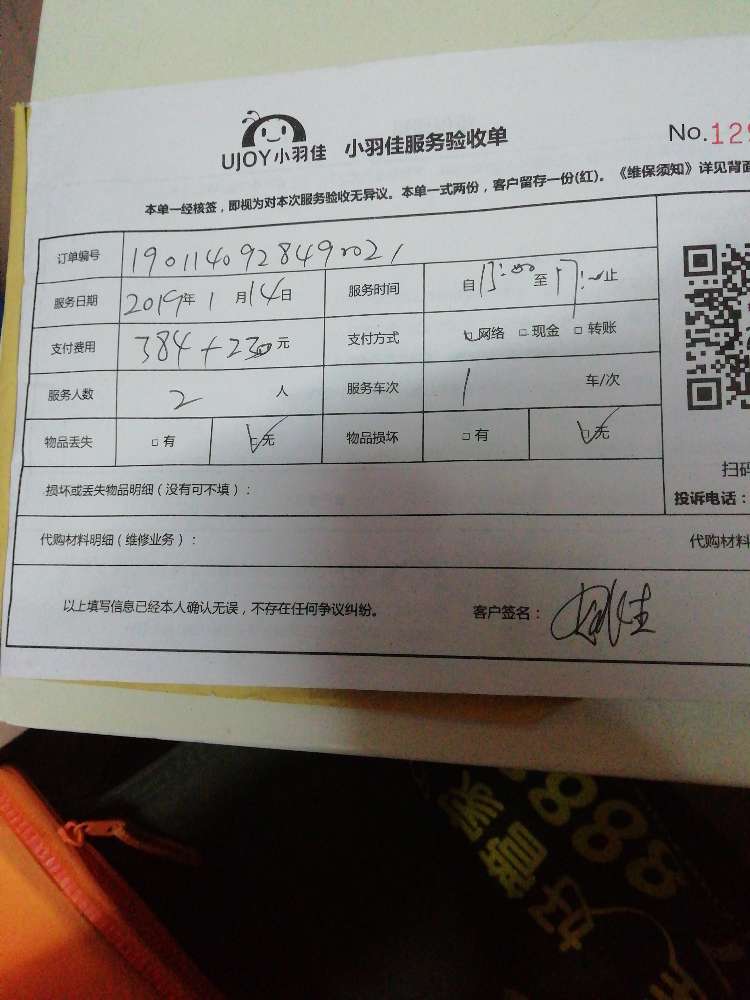 UJOY小羽佳 小羽佳服务验收单 No.129
本单一经核签，即视为对本次服务验收无异议。本单一式两份，客户留存一份(红)。《维保须知》详见背面
订单编号
服务日期 2019年 1 月14日 服务时间 自13:00 至17:00止
支付费用 384+230元 支付方式 网络 现金 转账
服务人数 2 人 服务车次 1 车/次
物品丢失 有 无 物品损坏 有 无
损坏或丢失物品明细（没有可不填）：
扫码
投诉电话：
代购材料明细（维修业务）： 代购材料
以上填写信息已经本人确认无误，不存在任何争议纠纷。 客户签名：